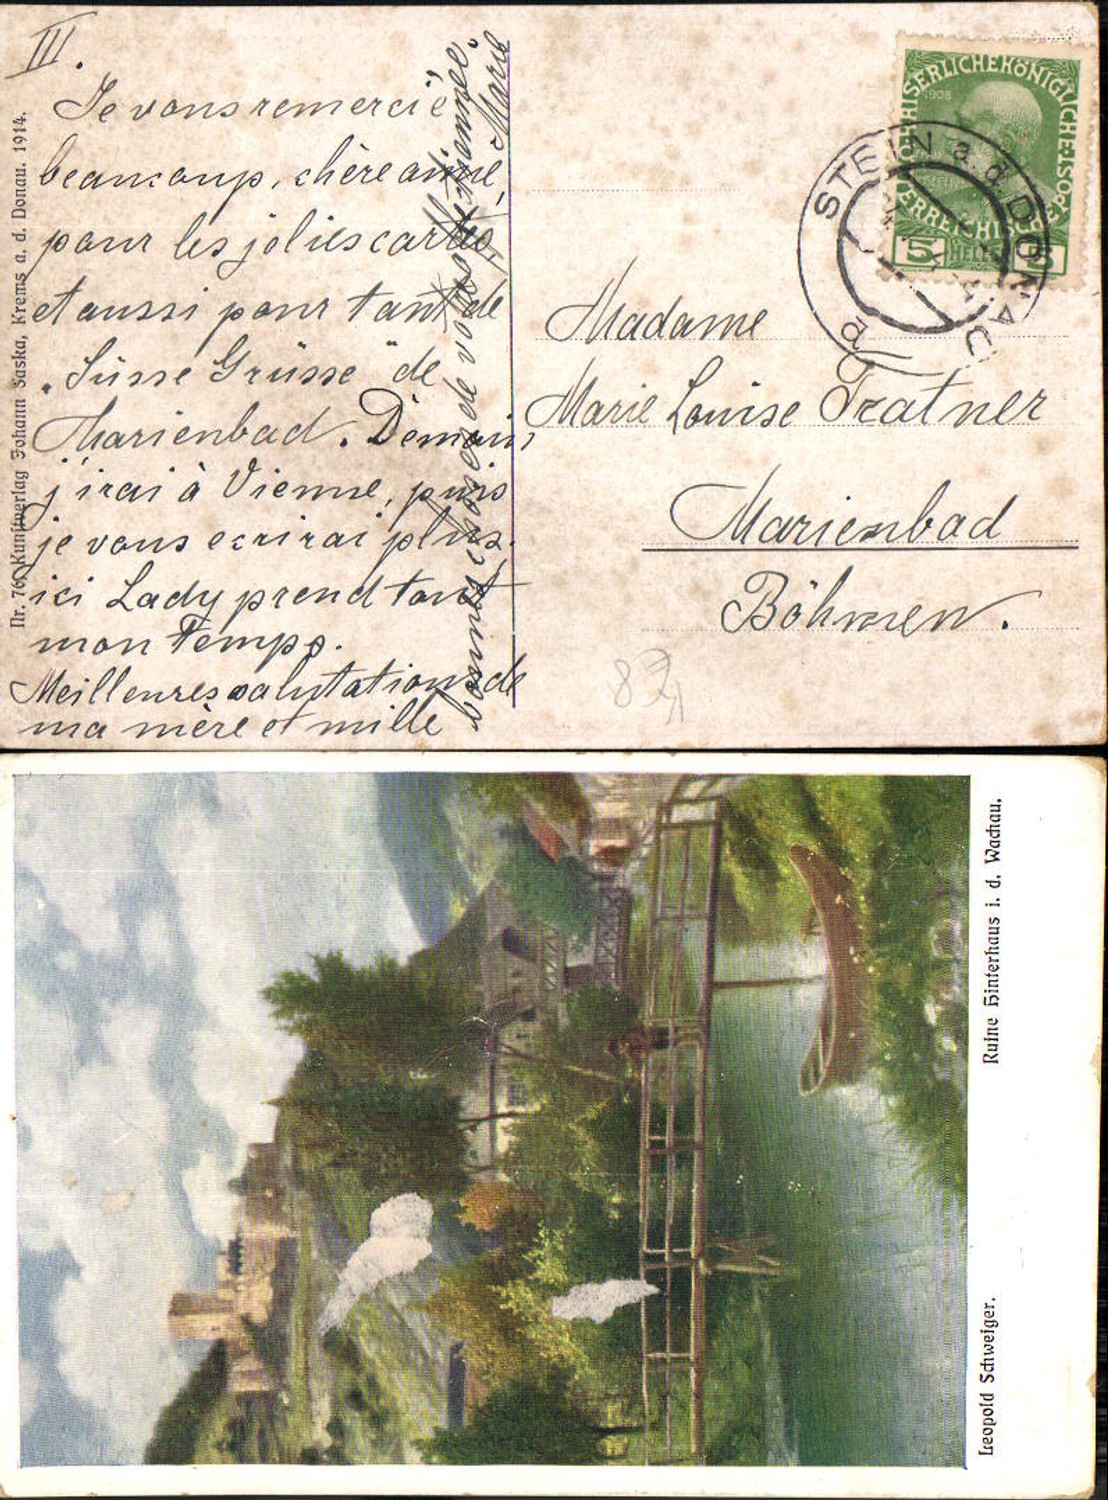 III.
Je vous remercie
beaucoup, chère amie,
pour les jolies cartes,
et aussi pour tant de
„Süsse Grüsse" de
Marienbad. Demain,
j'irai à Vienne, puis
je vous ecrirai plus.
ici Lady prend tout
mon Temps.
Meilleures salutations de
ma mère et mille
de votre
Marie
Nr. 76. Kunstverlag Johann Saska, Krems a. d. Donau. 1914.
KAISERLICHE KÖNIGLICHE
1908
ÖSTERREICHISCHE POST
5 HELLER 5
STEIN a. d. DONAU
Madame
Marie Louise Tratner
Marienbad
Böhmen.
Ruine Hinterhaus i. d. Wachau.
Leopold Schweiger.